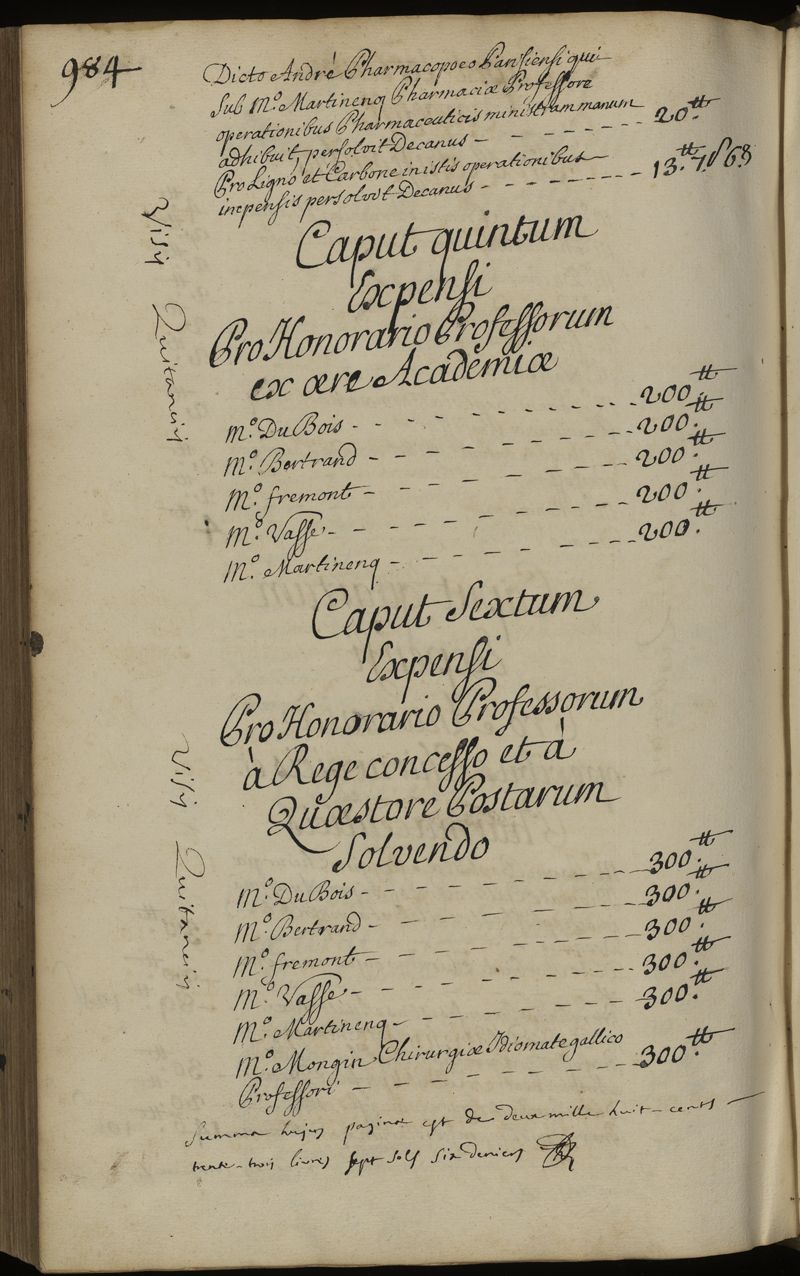 984
Dicto André Pharmacopoeo Parisiensi qui
sub M.o Martinenq Pharmaciæ Professore
operationibus Pharmaceuticis ministram manum
adhibuit, persolvit Decanus - - - - - - - - 20.tt
Pro Ligno et Carbone in istis operationibus
inpensis persolvit Decanus - - - - - - - - 13.tt 7.s 6.d
Visis Quitanciis
Caput quintum
Expensi
Pro Honorario Professorum
ex ære Academiæ
M.o DuBois - - - - - - - - - 200.tt
M.o Bertrand - - - - - - - - 200.tt
M.o fremont - - - - - - - - 200.tt
M.o Vasse - - - - - - - - - 200.tt
M.o Martinenq - - - - - - - - 200.tt
Visis Quitanciis
Caput Sextum
Expensi
Pro Honorario Professorum
à Rege concesso et à
Quæstore Postarum
Solvendo
M.o DuBois - - - - - - - - - 300.tt
M.o Bertrand - - - - - - - - 300.tt
M.o fremont - - - - - - - - 300.tt
M.o Vasse - - - - - - - - - 300.tt
M.o Martinenq - - - - - - - - 300.tt
M.o Mongin Chirurgiæ Idiomate gallico
Professori - - - - - - - - 300.tt
Summa hujus paginæ est de deux mille huit-cents
trente-trois livres sept sols six deniers